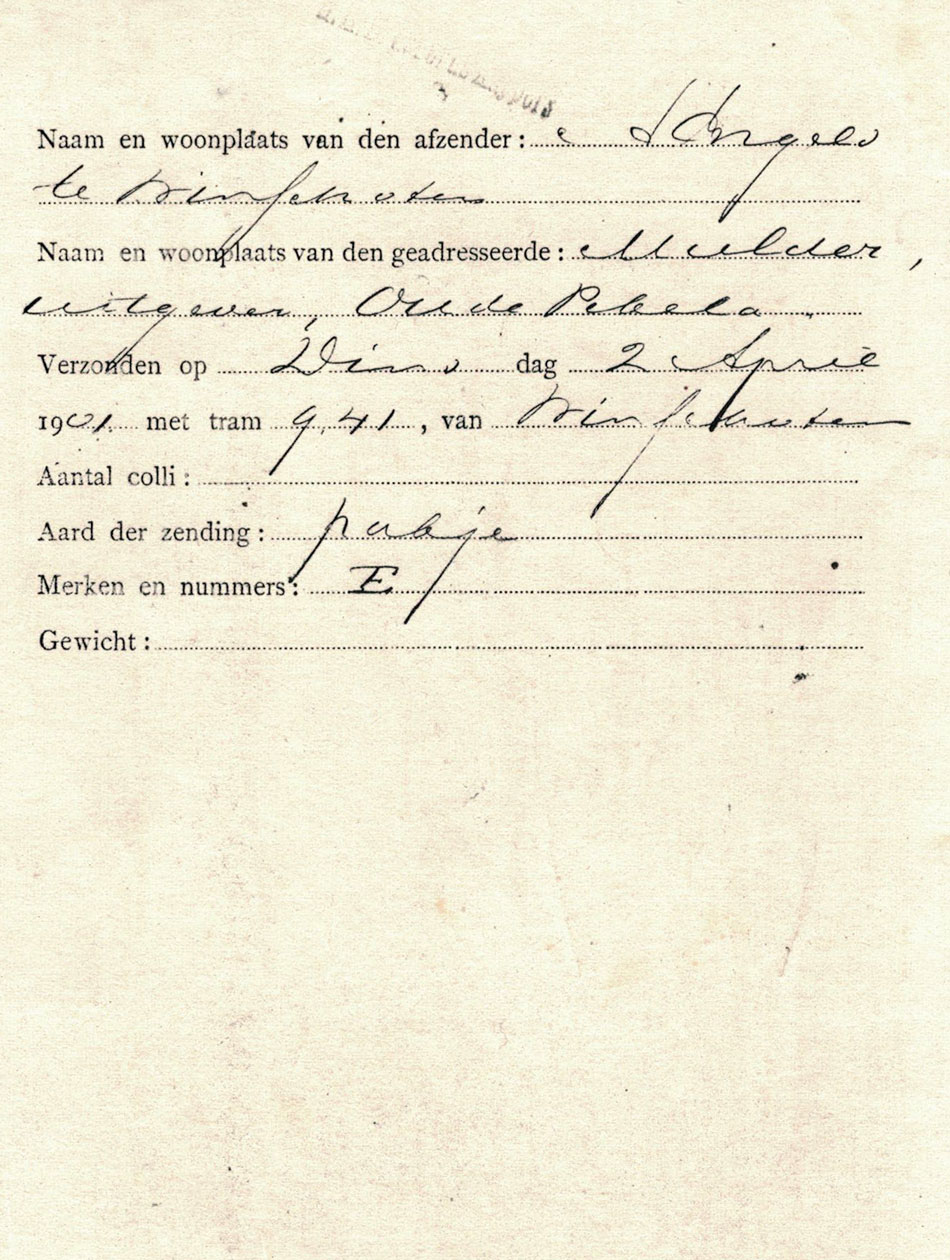 Naam en woonplaats van den afzender: J Engels
te Winschoten
Naam en woonplaats van den geadresseerde: Mulder,
uitgever, Oude Pekela.
Verzonden op Dins dag 2 April
1901 met tram 9.41, van Winschoten
Aantal colli:
Aard der zending: pakje
Merken en nummers: E
Gewicht: